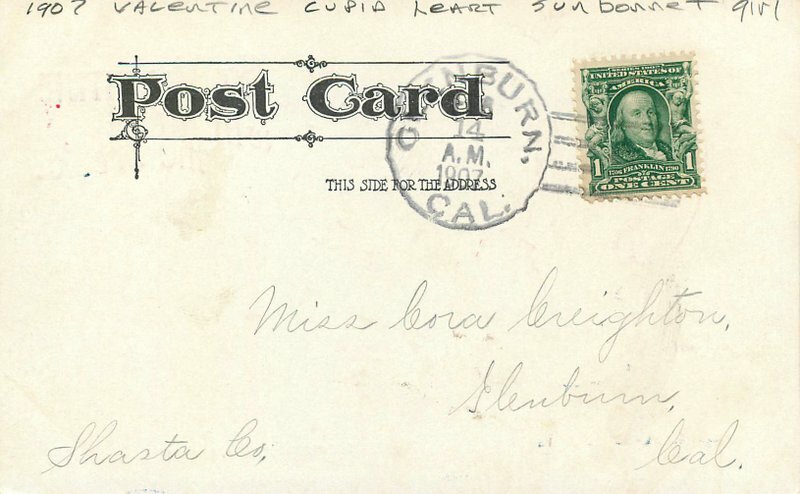 1907 VALENTINE CUPID HEART SUNBONNET girl
Post Card
THIS SIDE FOR THE ADDRESS
NBURN,
14
A.M.
1907
CAL.
SERIES 1902
UNITED STATES OF
AMERICA
1 1
1706 FRANKLIN 1790
POSTAGE
ONE CENT
Miss Cora Creighton,
Glenburn,
Shasta Co, Cal.